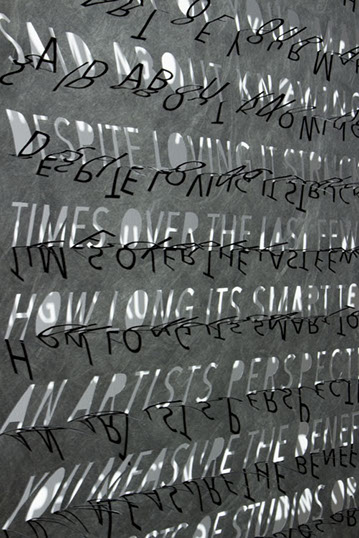 OF YOUR
SAID ABOUT KNOWING
DESPITE LOVING IT STRUC
TIMES OVER THE LAST FEW
HOW LONG ITS SMART TO
AN ARTISTS PERSPECTI
YOU MEASURE THE BENEF
OF STUDIOS OR